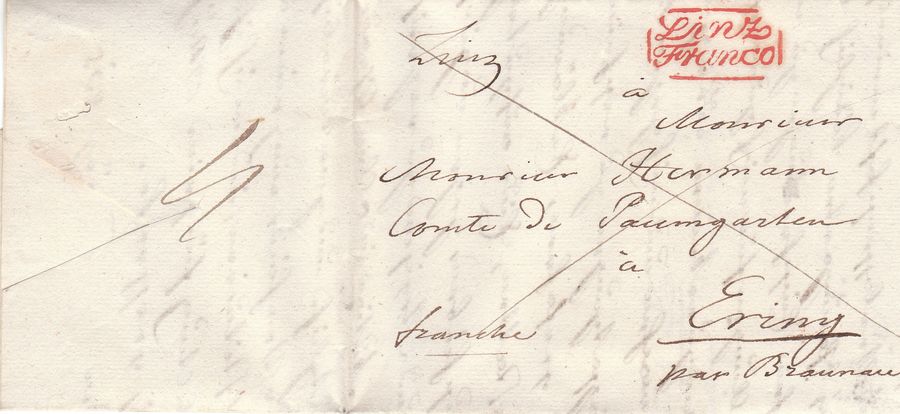 Linz
Franco
Linz
à
Monsieur
Monsieur Hermann
Comte de Paumgarten
à
Ering
franche
par Braunau